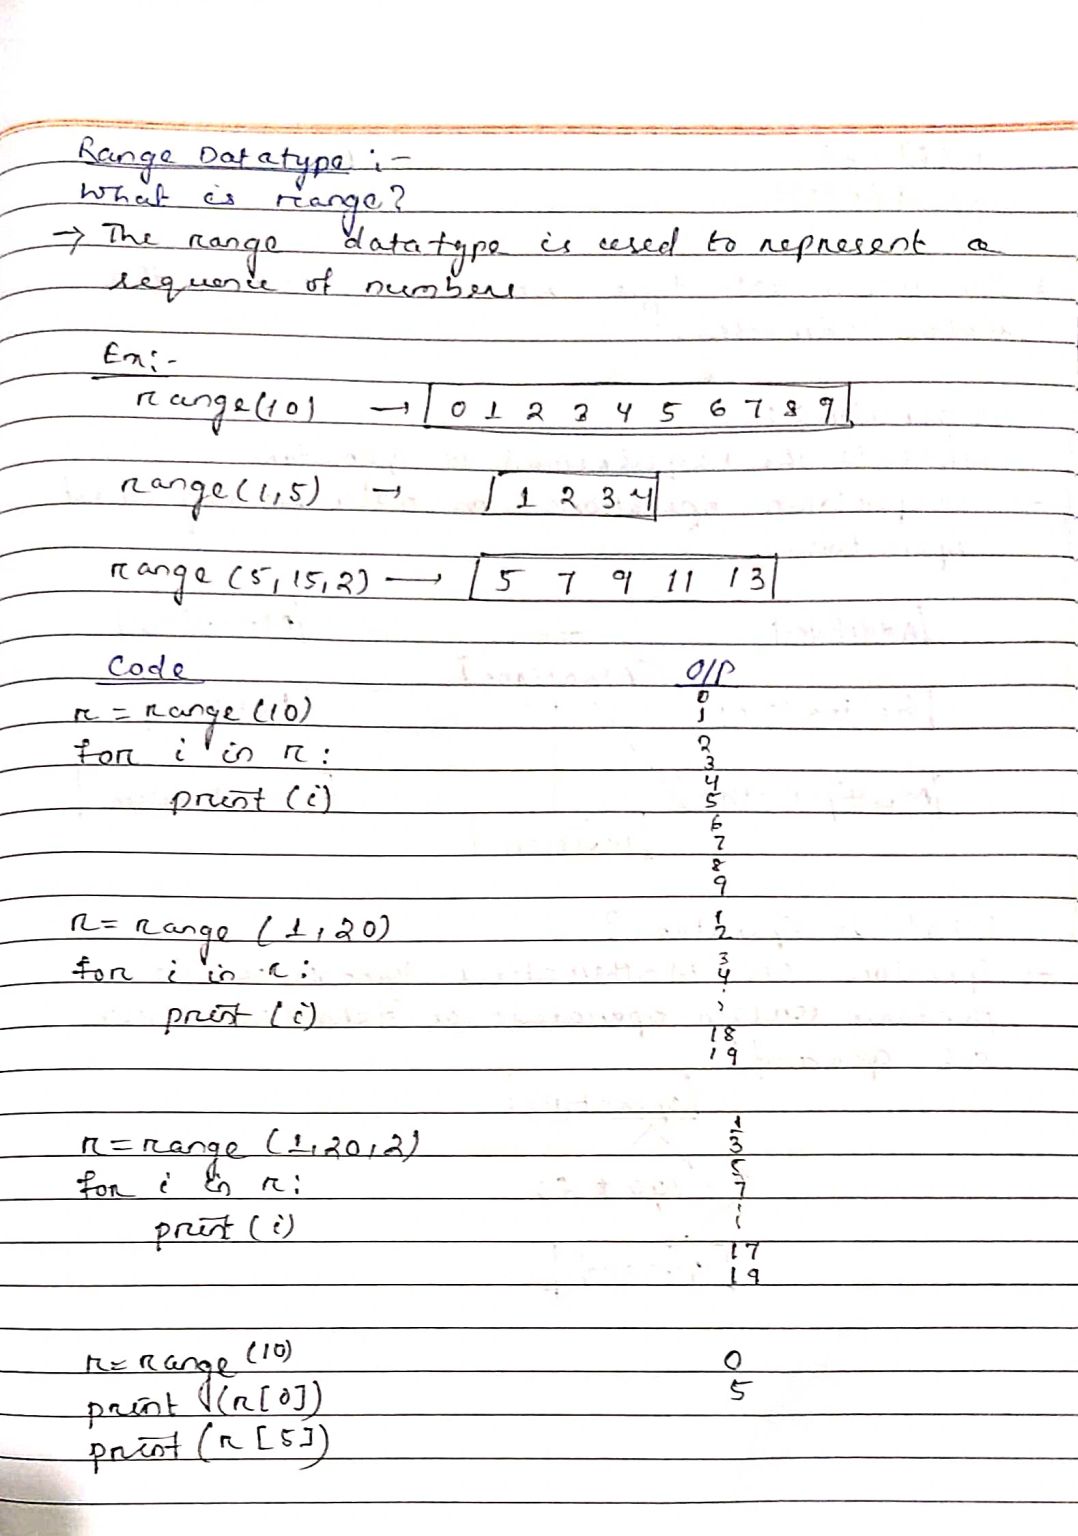 Range Datatype :-
What is range?
→ The range datatype is used to represent a
sequence of numbers
Ex:-
range(10) → 0 1 2 3 4 5 6 7 8 9
range(1,5) → 1 2 3 4
range (5,15,2) → 5 7 9 11 13
Code O/P
r = range (10) 0
1
for i in r: 2
3
4
print (i) 5
6
7
8
9
r = range (1,20) 1
2
for i in r: 3
4
:
print (i)
18
19
r = range (1,20,2) 1
3
for i in r: 5
7
:
print (i)
17
19
r = range (10) 0
print (r[0]) 5
print (r[5])